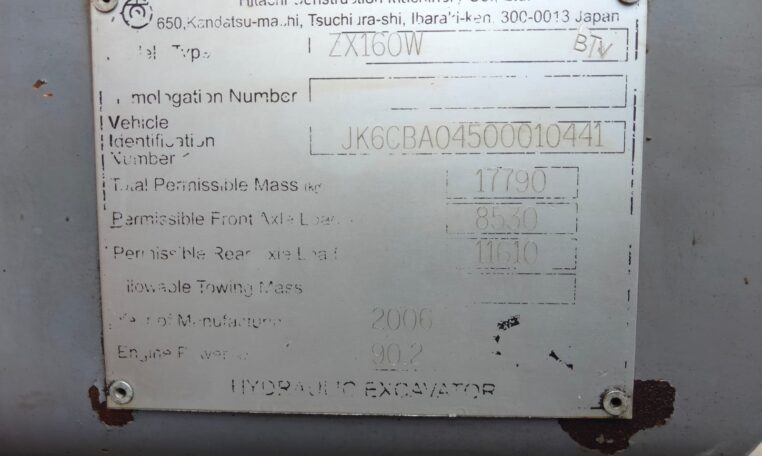 Hitachi Construction Machinery Co., Ltd.
650,Kandatsu-machi, Tsuchiura-shi, Ibaraki-ken, 300-0013 Japan
Model Type ZX160W BTV
Homologation Number
Vehicle
Identification
Number JK6CBA04500010441
Total Permissible Mass (kg) 17790
Permissible Front Axle Load 8530
Permissible Rear Axle Load 11610
Allowable Towing Mass
Year of Manufacture 2006
Engine Power 90.2
HYDRAULIC EXCAVATOR